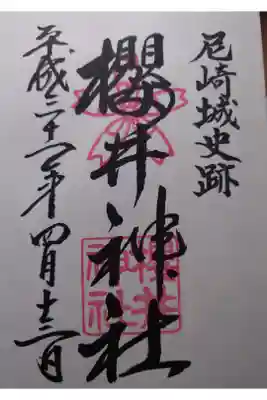 尼崎城史跡
櫻井神社
櫻井
神社
平成三十一年四月十三日